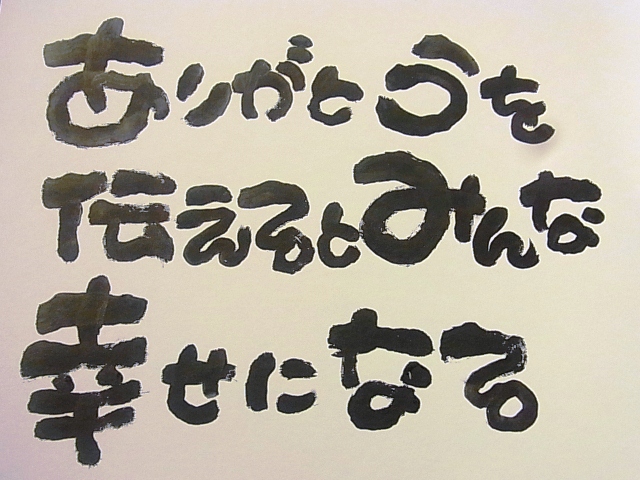 ありがとうを
伝えるとみんな
幸せになる